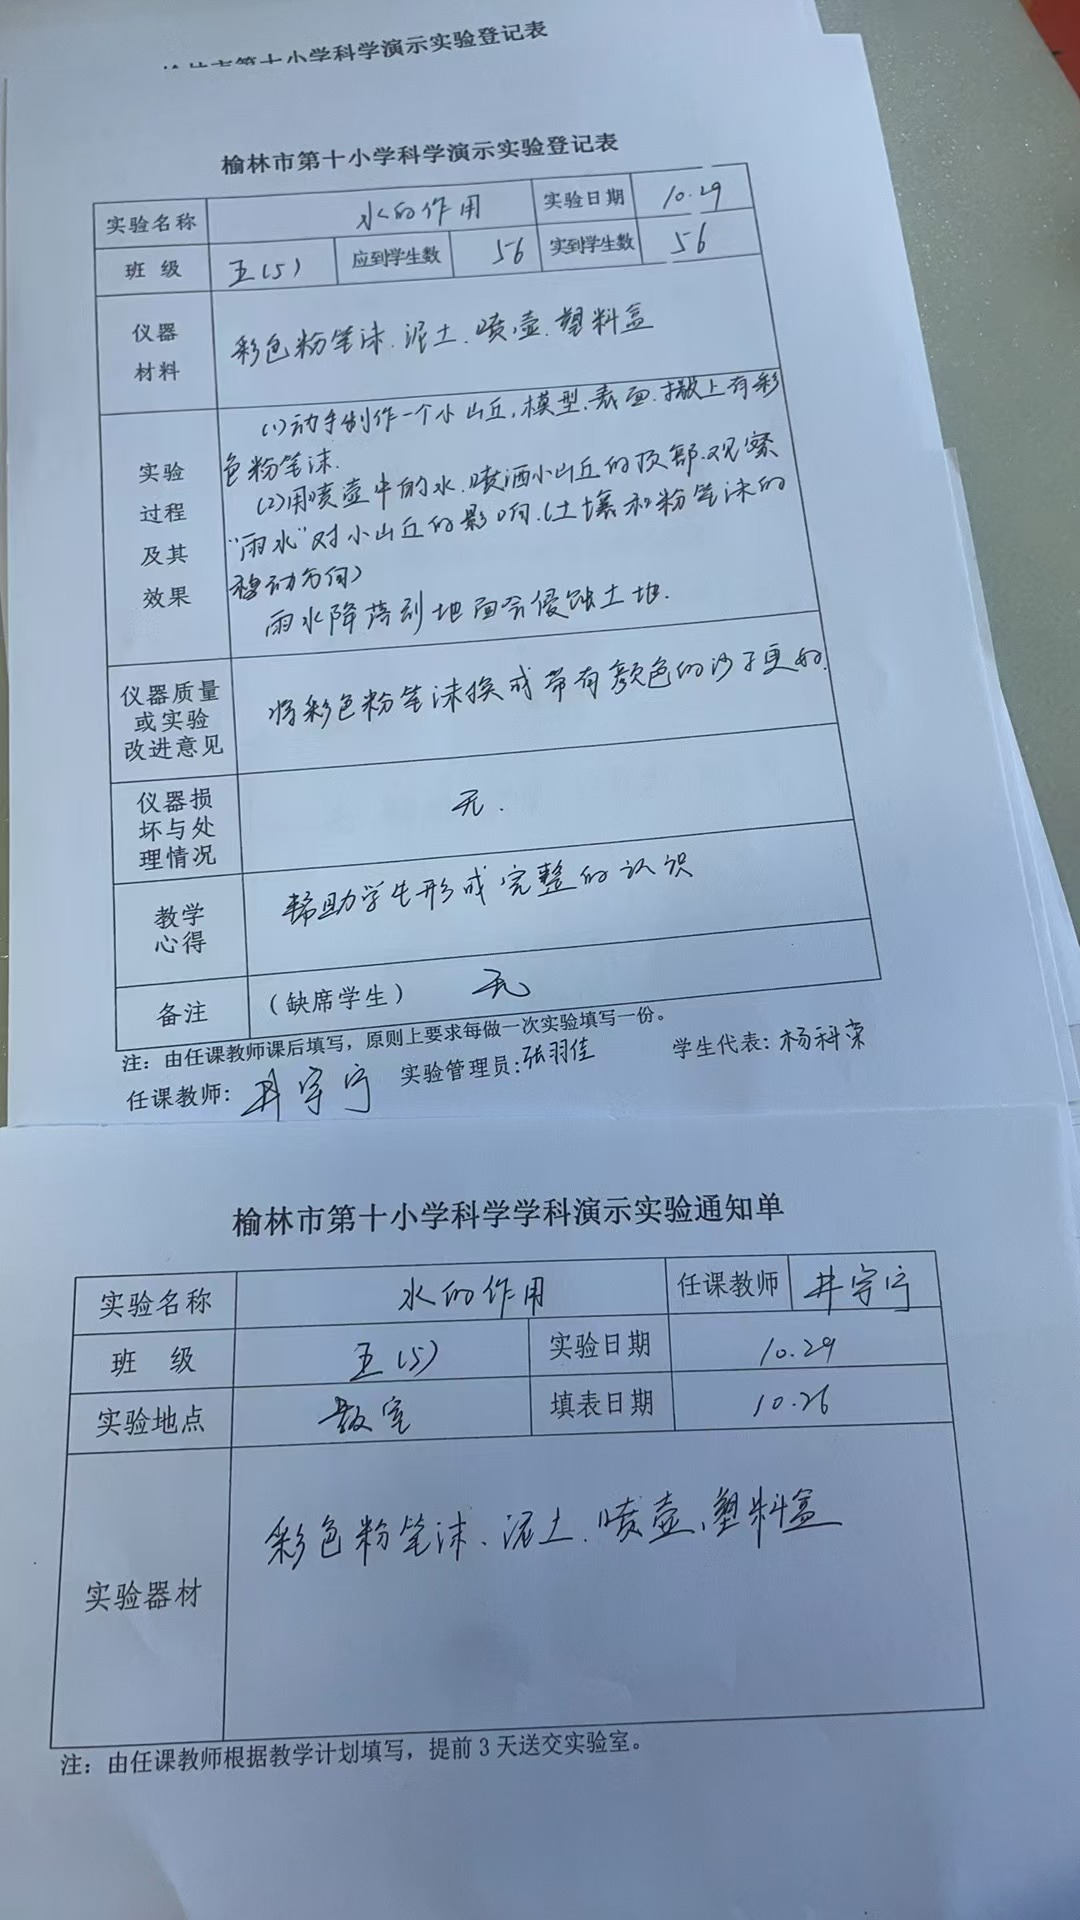 榆林市第十小学科学演示实验登记表
榆林市第十小学科学演示实验登记表
实验名称 水的作用 实验日期 10.29
班 级 五(5) 应到学生数 56 实到学生数 56
仪器
材料
彩色粉笔沫、泥土、喷壶、塑料盒
实验
过程
及其
效果
(1)动手制作一个小山丘,模型、表面、撒上有彩
色粉笔沫.
(2)用喷壶中的水、喷洒小山丘的顶部、观察
"雨水"对小山丘的影响.(土壤和粉笔沫的
移动方向)
雨水降落到地面会侵蚀土地.
仪器质量
或实验
改进意见
将彩色粉笔沫换成带有颜色的沙子更好.
仪器损
坏与处
理情况
无.
教学
心得
帮助学生形成完整的认识
备注 (缺席学生) 无
注: 由任课教师课后填写, 原则上要求每做一次实验填写一份。
任课教师: 井宇宁 实验管理员: 张羽佳 学生代表: 杨科荣
榆林市第十小学科学学科演示实验通知单
实验名称 水的作用 任课教师 井宇宁
班 级 五(5) 实验日期 10.29
实验地点 教室 填表日期 10.26
实验器材 彩色粉笔沫、泥土、喷壶、塑料盒
注: 由任课教师根据教学计划填写, 提前 3 天送交实验室。